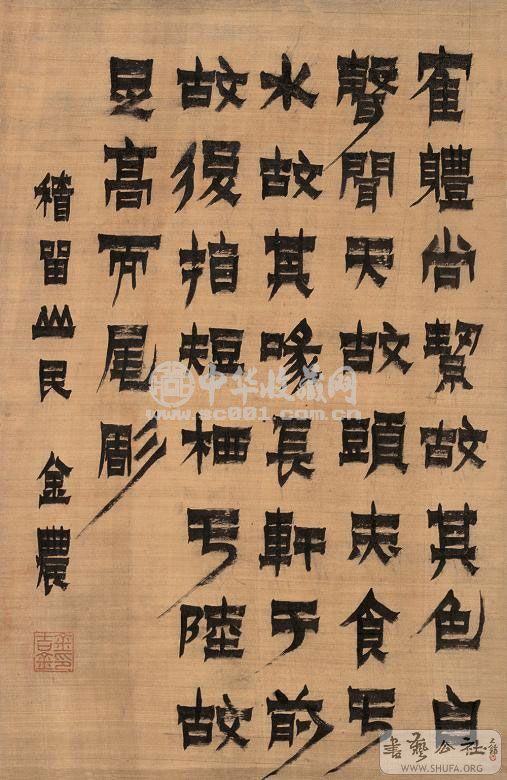 寉體尚絜故其色白
聲聞天故頭赤食亏
水故其喙長軒于前
故後指短栖亏陸故
足高而尾彫
稽留山民 金農
金吉金印
中华收藏网
www.sc001.com.cn
書藝公社
WWW.SHUFA.ORG